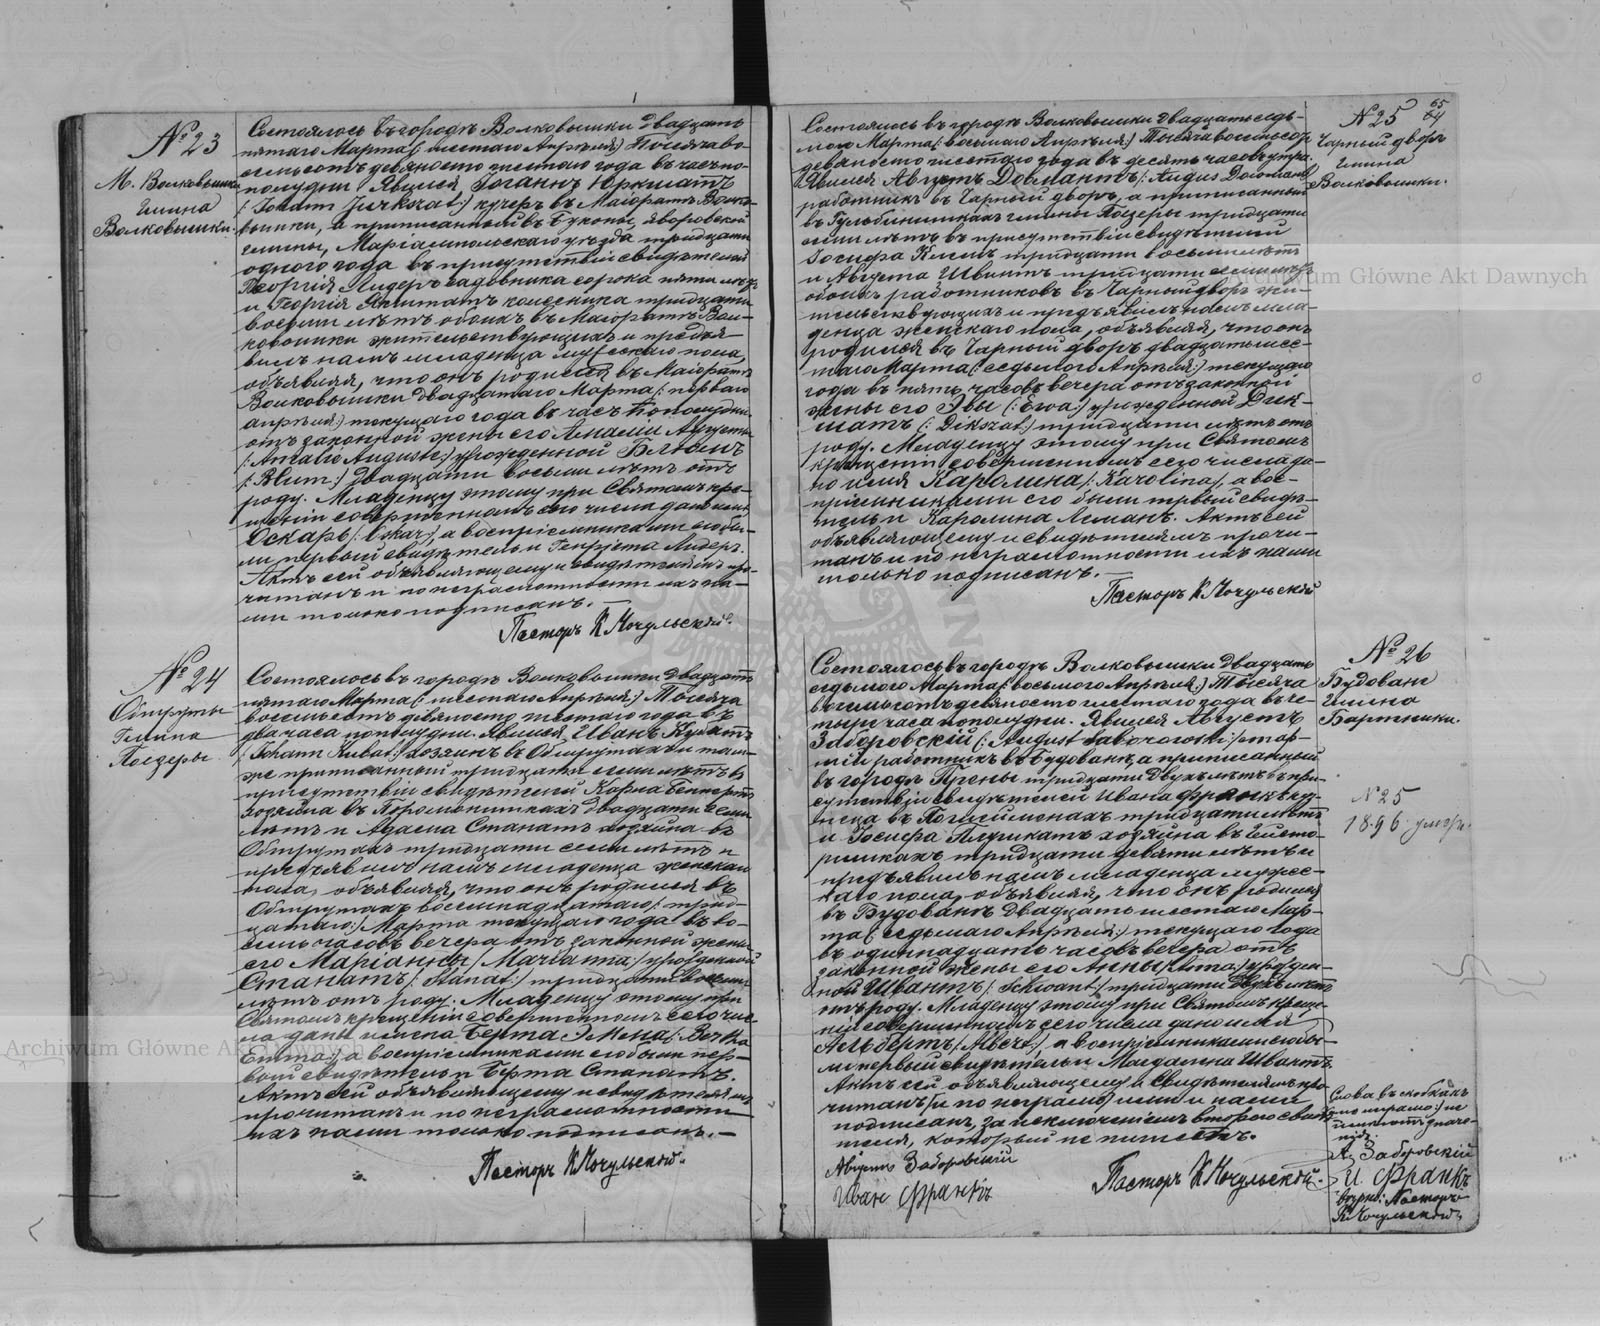 № 23
М. Волковышки
Гмина
Волковышки.
Состоялось въ городѣ Волковышки двадцать
пятаго Марта (: шестаго Апрѣля:) Тысяча во-
семьсотъ девяносто шестаго года въ часъ по-
полудни. Явился Іоганъ Юркшатъ
(: Johann Jurkszat:) кучеръ въ Маіоратѣ Волко-
вышки, а приписанный въ Буконы, Яворовской
гмины, Маріампольскаго уѣзда тридцати
одного года въ присутствіи свидѣтелей
Георгія Лидеръ садовника сорока пяти лѣтъ
и Георгія колесника тридцати
восьми лѣтъ обоихъ въ Маіоратѣ Вол-
ковышки жительствующихъ и предъя-
вилъ намъ младенца мужескаго пола,
объявляя, что онъ родился въ Маіоратѣ
Волковышки двадцатаго Марта (: перваго
апрѣля:) текущаго года въ часъ пополудни
отъ законной жены его Амаліи Августы
(: Amalie Auguste:) урожденной Блюмъ
(: Blum:) двадцати восьми лѣтъ отъ
роду. Младенцу этому при Святомъ кре-
щеніи совершенномъ сего числа дано имя
Оскаръ (: Oskar:), а воспріемниками его бы-
ли первый свидѣтель и Генріета Лидеръ.
Актъ сей объявляющему и свидѣтелямъ про-
читанъ и по неграмотности ихъ на-
ми только подписанъ.—
Пасторъ К Мочульскій.
№ 24
Обшруты
Гмина
Поезеры
Состоялось въ городѣ Волковышки двадцать
пятаго Марта (: шестаго Апрѣля:) Тысяча
восемьсотъ девяносто шестаго года въ
два часа пополудни. Явился Иванъ Кубатъ
(: Johann Kubat:) хозяинъ въ Обшрутахъ и тамъ
же приписанный тридцати семи лѣтъ въ
присутствіи свидѣтелей Карла
хозяина въ двадцати семи
лѣтъ и Адама Станатъ хозяина въ
Обшрутахъ тридцати семи лѣтъ и
предъявилъ намъ младенца женскаго
пола, объявляя, что онъ родился въ
Обшрутахъ восемнадцатаго (: трид-
цатаго:) Марта текущаго года въ во-
семь часовъ вечера отъ законной жены
его Маріанны (: Marianna:) урожденной
Станатъ (: Stanat:) тридцати восьми
лѣтъ отъ роду. Младенцу этому при
Святомъ крещеніи совершенномъ сего чис-
ла даны имена Берта Эмма (: Bertha
Emma:) а воспріемниками его были пер-
вый свидѣтель и Берта Станатъ.
Актъ сей объявляющему и свидѣтелямъ
прочитанъ и по неграмотности
ихъ нами только подписанъ.—
Пасторъ К Мочульскій.
65
64
№ 25
Чарный дворъ
Гмина
Волковышки.
Состоялось въ городѣ Волковышки двадцать седь-
маго Марта (: восьмаго Апрѣля:) Тысяча восемьсотъ
девяносто шестаго года въ десять часовъ утра.
Явился Августъ Довлантъ (: Augus
работникъ въ Чарный дворѣ, а приписанный
въ гмины Поезеры тридцати
семи лѣтъ въ присутствіи свидѣтелей
Іосифа Климъ тридцати восьми лѣтъ
и Августа Швантъ тридцати семи лѣтъ
обоихъ работниковъ въ Чарный дворѣ жи-
тельствующихъ и предъявилъ намъ мла-
денца женскаго пола, объявляя, что онъ
родился въ Чарный дворѣ двадцать шес-
таго Марта (: седьмаго Апрѣля:) текущаго
года въ пять часовъ вечера отъ законной
жены его Эвы (: Ewa:) урожденной Дик-
шатъ (: Dikszat:) тридцати лѣтъ отъ
роду. Младенцу этому при Святомъ
крещеніи совершенномъ сего числа да-
но имя Каролина (: Karolina:), а вос-
пріемниками его были первый свидѣ-
тель и Каролина Леманъ. Актъ сей
объявляющему и свидѣтелямъ прочи-
танъ и по неграмотности ихъ нами
только подписанъ.—
Пасторъ К Мочульскій
№ 26
Будована
Гмина
Бартники.
№ 25
1896 умер.
Состоялось въ городѣ Волковышки двадцать
седьмого Марта (: восьмого Апрѣля:) Тысяча
восемьсотъ девяносто шестаго года въ че-
тыри часа пополудни. Явился Августъ
Заборовскій (: August Saborowski:)
работникъ въ Будованѣ, а приписанный
въ городѣ Прены тридцати двухъ лѣтъ въ при-
сутствіи свидѣтелей Ивана Франкъ куз-
неца въ тридцати лѣтъ
и Іосифа хозяина въ
тридцати девяти лѣтъ и
предъявилъ намъ младенца мужес-
каго пола, объявляя, что онъ родился
въ Будованѣ двадцать шестаго Мар-
та (: седьмаго Апрѣля:) текущаго года
въ одиннадцать часовъ вечера отъ
законной жены его Анны (: Anna:) урожден-
ной Швантъ (: Schwant:) тридцати двухъ лѣтъ
отъ роду. Младенцу этому при Святомъ креще-
ніи совершенномъ сего числа дано имя
Альбертъ (: Albert:), а воспріемниками его бы-
ли первый свидѣтель и Магдалина Швантъ.
Актъ сей объявляющему и свидѣтелямъ про-
читанъ (и по неграмо) ими и нами
подписанъ, за исключеніемъ второго свидѣ-
теля, который не пишетъ.
Августъ Заборовскій
Иван Франкъ
Пасторъ К Мочульскій.
Слова въ скобкахъ
„по неграмо“ не
имѣютъ значе-
нія.
А. Заборовскій
И. Франкъ
вѣрно: Пасторъ
К. Мочульскій
Archiwum Główne Akt Dawnych
Archiwum Główne Akt Dawnych